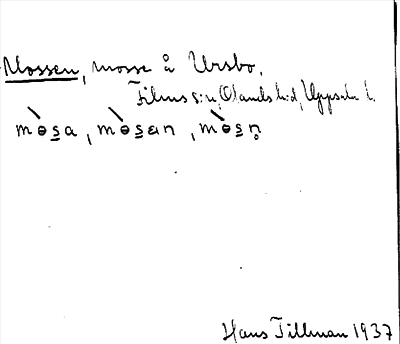 Mossen, mosse å Ursbo,
Films s:n, Olands h:d, Uppsala l.
mòs̲a, mòs̲an, mòs̲n̥
Hans Tillman 1937